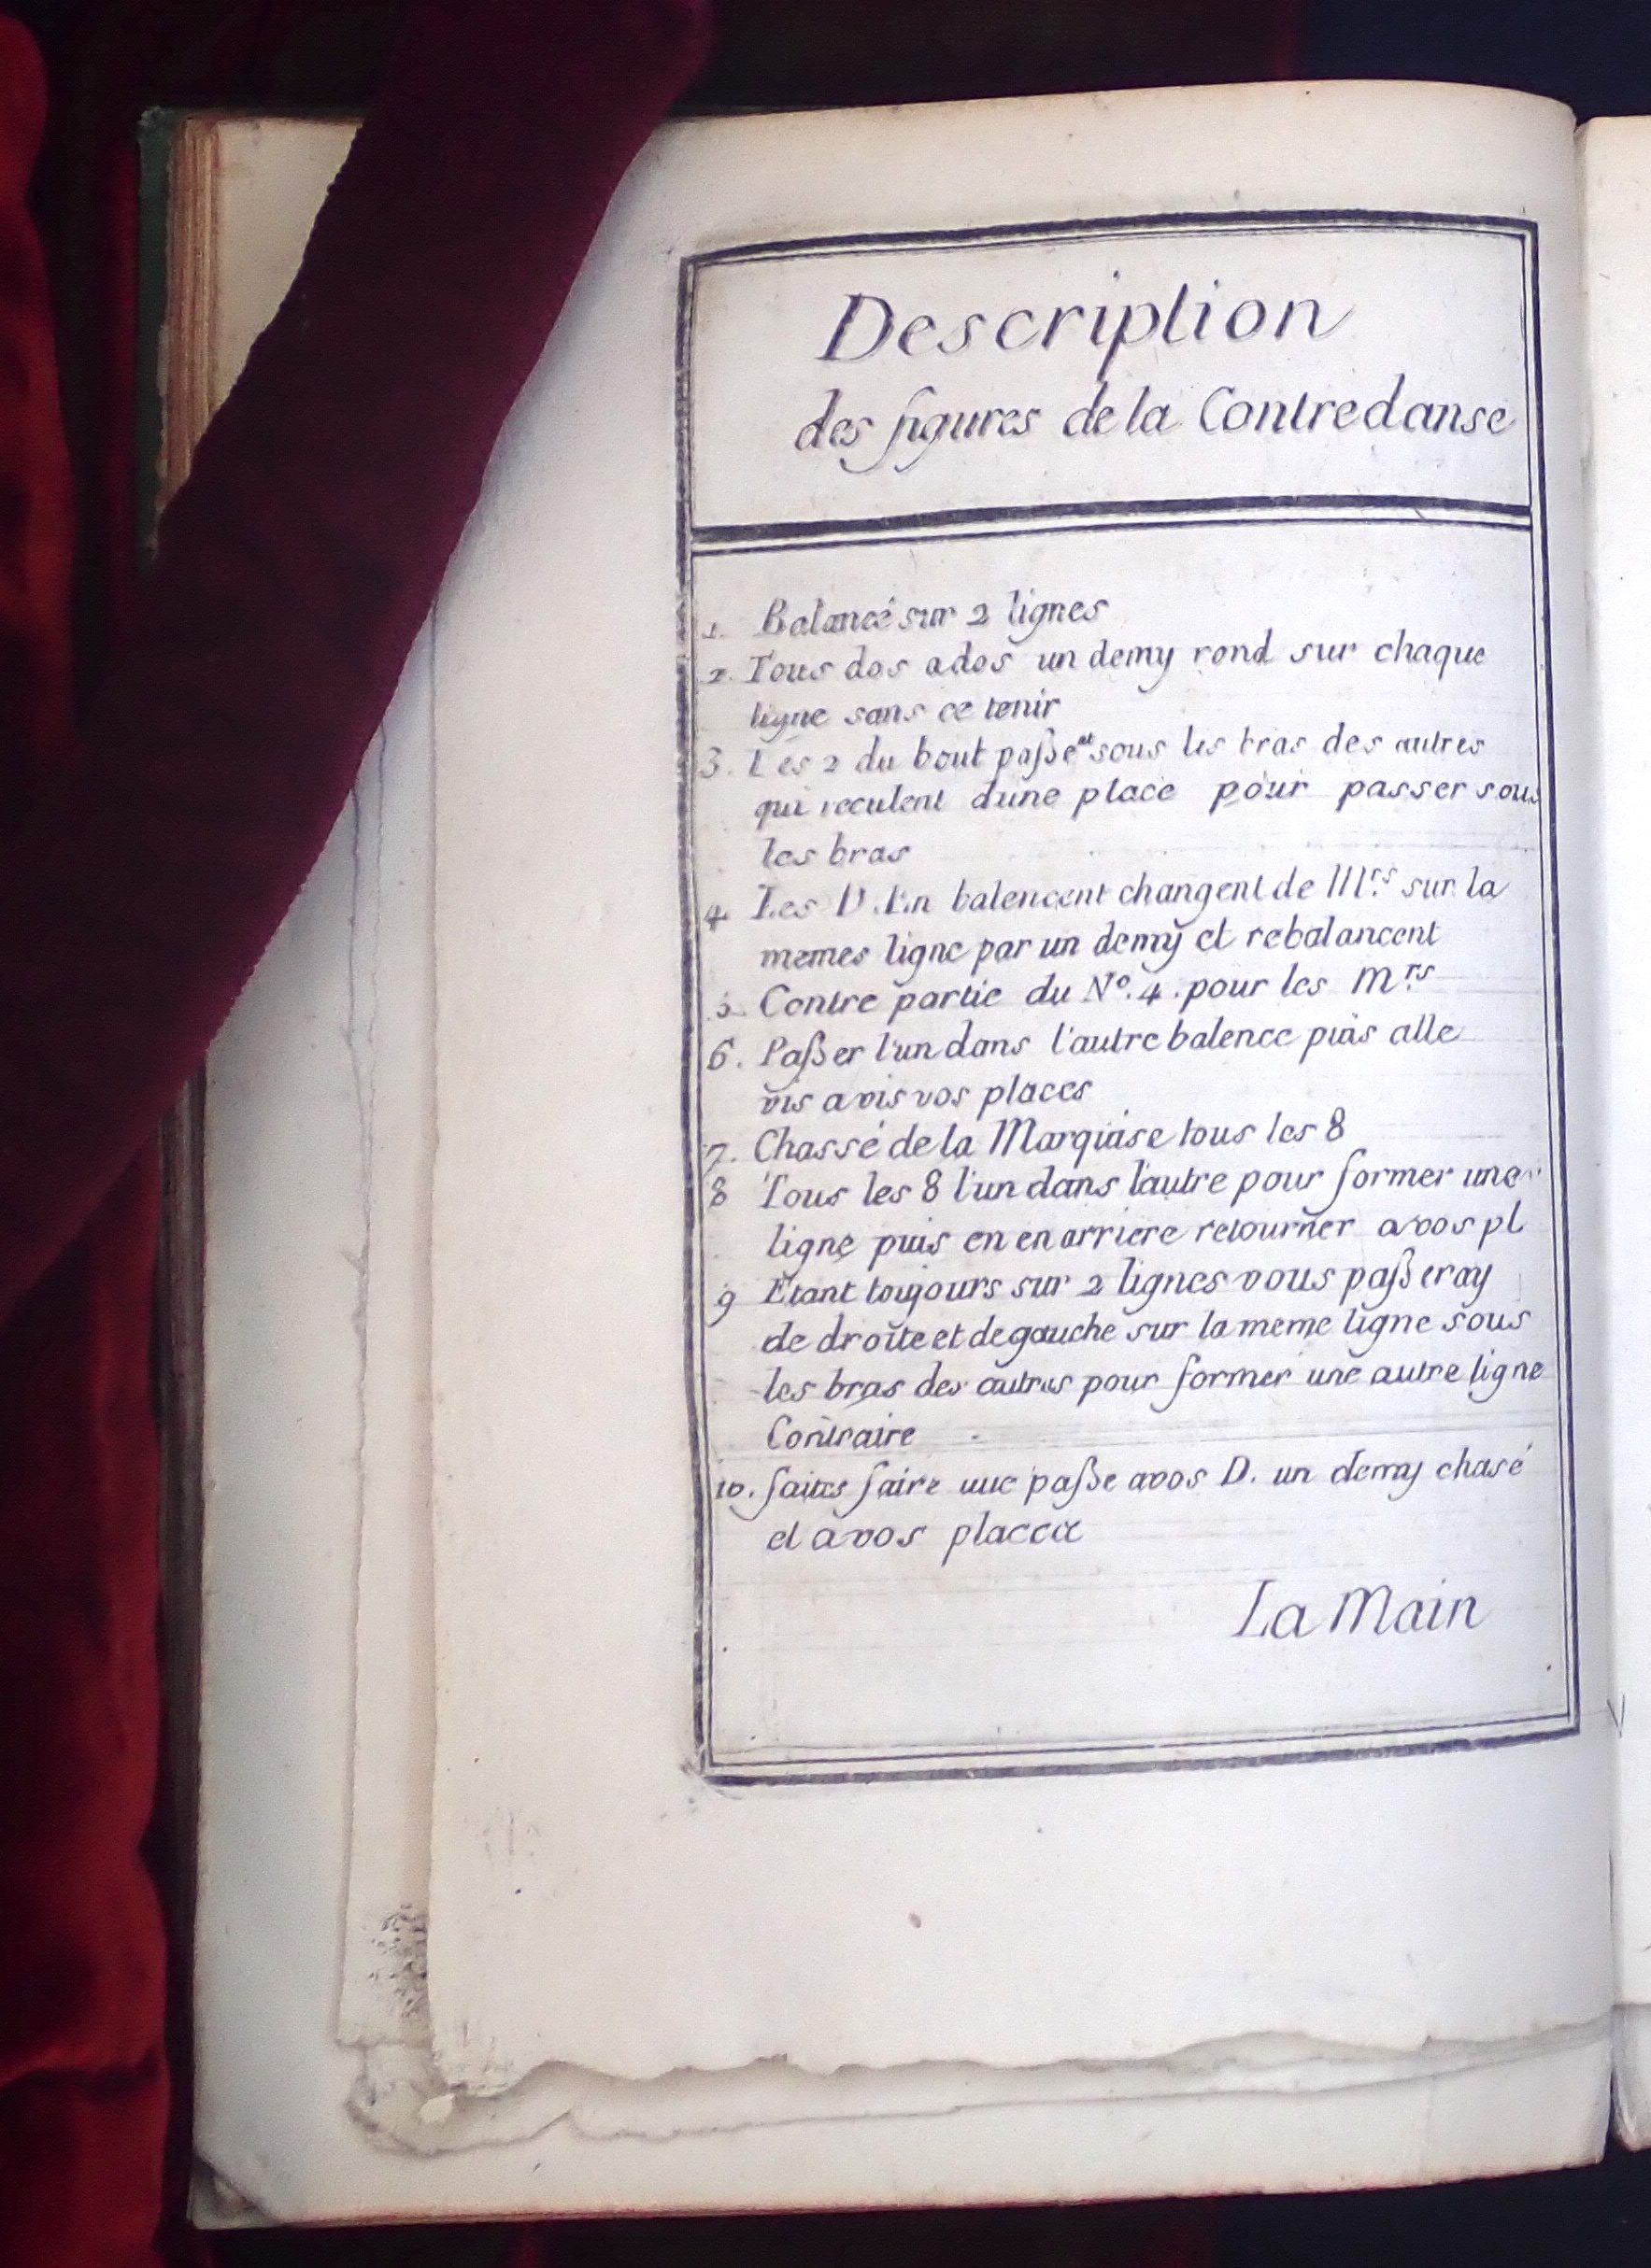 Description
des figures de la Contredanse
1. Balancé sur 2 lignes
2. Tous dos ados un demy rond sur chaque
ligne sans ce tenir
3. Les 2 du bout paßent sous les bras des autres
qui reculent dune place pour passer sous
les bras
4. Les D. En balencent changent de Mrs. sur la
memes ligne par un demy et rebalancent
5. Contre partie du No. 4. pour les Mrs.
6. Paßer l'un dans l'autre balence puis alle
vis avis vos places
7. Chassé de la Marquise tous les 8
8 Tous les 8 l'un dans lautre pour former une
ligne puis en en arriere retourner avos pl
9 Etant toujours sur 2 lignes vous paßeray
de droite et de gauche sur la meme ligne sous
les bras des autres pour former une autre ligne
Contraire
10. faites faire une paße avos D. un demy chasé
et avos
La Main